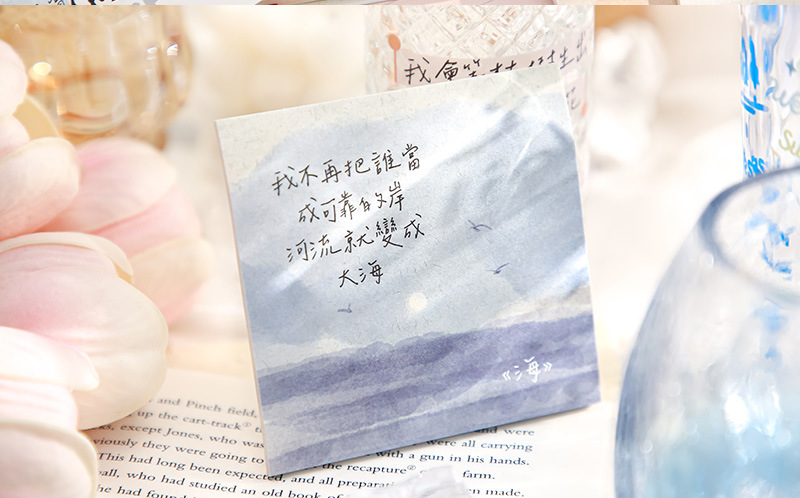 我會
我不再把誰當
成可靠的岸
河流就變成
大海
《海》
and Pinch field,
up the cart-track
except Jones, who was
and were
were all carrying
viously they were going to
with a gun in his hands.
This had long been expected, and all
the recapture
farm.
all, who had studied an old book of
made,
he had